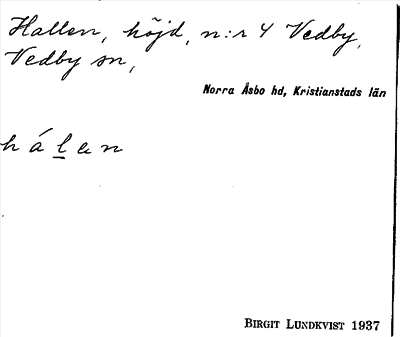 Hallen, höjd, n:r 4 Vedby,
Vedby sn,
Norra Åsbo hd, Kristianstads län
hálen
BIRGIT LUNDKVIST 1937